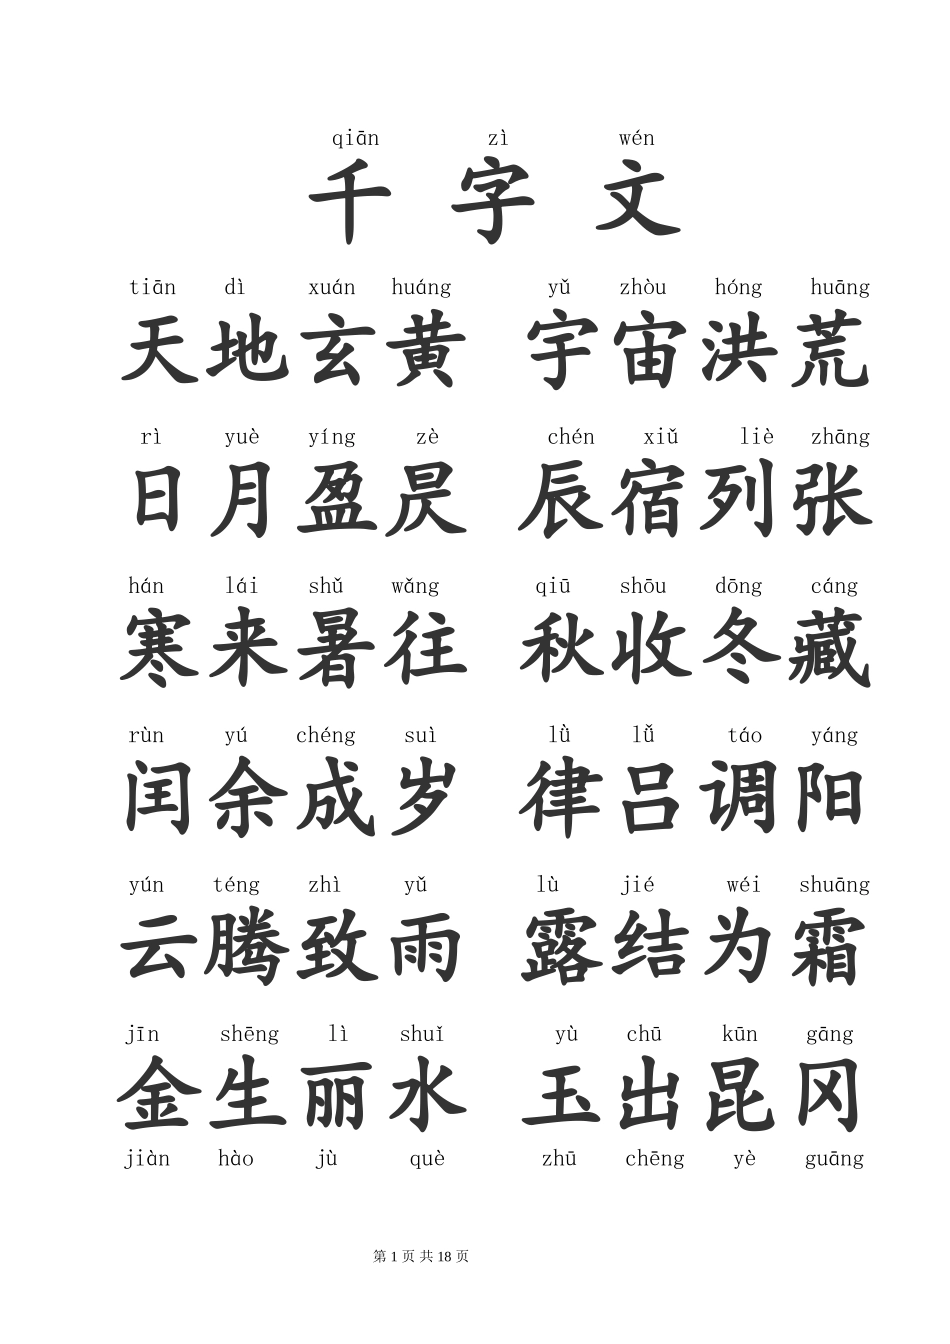 qiān zì wén
千 字 文
tiān dì xuán huáng yǔ zhòu hóng huāng
天 地 玄 黄 宇 宙 洪 荒
rì yuè yíng zè chén xiǔ liè zhāng
日 月 盈 昃 辰 宿 列 张
hán lái shǔ wǎng qiū shōu dōng cáng
寒 来 暑 往 秋 收 冬 藏
rùn yú chéng suì lǜ lǚ táo yáng
闰 余 成 岁 律 吕 调 阳
yún téng zhì yǔ lù jié wéi shuāng
云 腾 致 雨 露 结 为 霜
jīn shēng lì shuǐ yù chū kūn gāng
金 生 丽 水 玉 出 昆 冈
jiàn hào jù què zhū chēng yè guāng
第 1 页 共 18 页